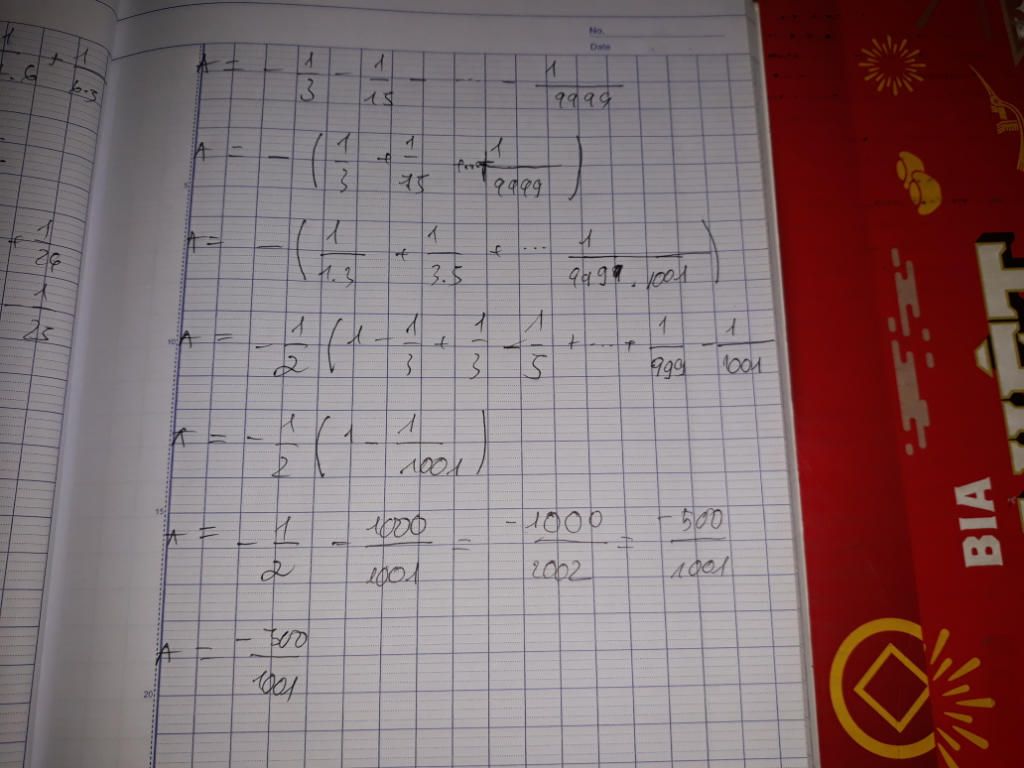 No.
Date
1/..6 + 1/6.3
+ 1/26
1/25
A = - 1/3 - 1/15 - ... - 1/9999
A = - (1/3 + 1/15 ...+ 1/9999)
A = - (1/1.3 + 1/3.5 + ... 1/999.1001)
A = - 1/2 (1 - 1/3 + 1/3 - 1/5 + ... + 1/999 - 1/1001
A = - 1/2 (1 - 1/1001)
A = - 1/2 - 1000/1001 = -1000/2002 = -500/1001
A = -500/1001
5
10
15
20
BIA
VIỆT